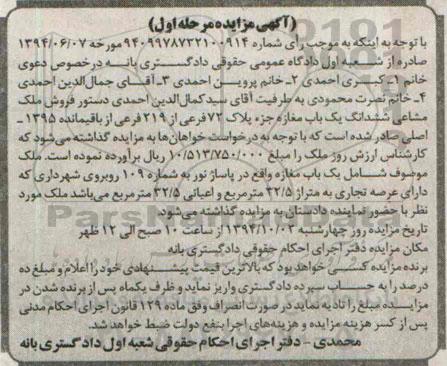 (آگهی مزایده مرحله اول)
با توجه به اینکه به موجب رای شماره ۹۴۰۹۹۷۸۷۳۲۱۰۰۹۱۴ مورخه ۱۳۹۴/۰۶/۰۷
صادره از شعبه اول دادگاه عمومی حقوقی دادگستری بانه درخصوص دعوی
خانم ۱ـ کبری احمدی ۲ـ خانم پروین احمدی ۳ـ آقای جمال‌الدین احمدی
۴ـ خانم نصرت محمودی به طرفیت آقای سید کمال‌الدین احمدی دستور فروش ملک
مشاعی ششدانگ یک باب مغازه جزء پلاک ۷۲ فرعی از ۲۱۹ فرعی از باقیمانده ۱۳۹۵ ـ
اصلی صادر شده است که با توجه به درخواست خواهان‌ها به مزایده گذاشته می‌شود که
کارشناس ارزش روز ملک را مبلغ ۱۰/۵۱۳/۷۵۰/۰۰۰ ریال برآورده نموده است. ملک
موصوف شامل یک باب مغازه واقع در پاساژ نور به شماره ۱۰۹ روبروی شهرداری که
دارای عرصه تجاری به متراژ ۳۲/۵ مترمربع و اعیانی ۳۲/۵ مترمربع می‌باشد ملک مورد
نظر با حضور نماینده دادستان به مزایده گذاشته می‌شود.
تاریخ مزایده روز چهارشنبه ۱۳۹۴/۱۰/۰۲ از ساعت ۱۰ صبح الی ۱۲ ظهر
مکان مزایده دفتر اجرای احکام حقوقی دادگستری بانه
برنده مزایده کسی خواهد بود که بالاترین قیمت پیشنهادی خود را اعلام و مبلغ ده
درصد را به حساب سپرده دادگستری واریز نماید و ظرف یکماه پس از برنده شدن در
مزایده مبلغ را تادیه نماید در صورت انصراف وفق ماده ۱۲۹ قانون اجرای احکام مدنی
پس از کسر هزینه مزایده و هزینه‌های اجرا بنفع دولت ضبط خواهد شد.
محمدی - دفتر اجرای احکام حقوقی شعبه اول دادگستری بانه